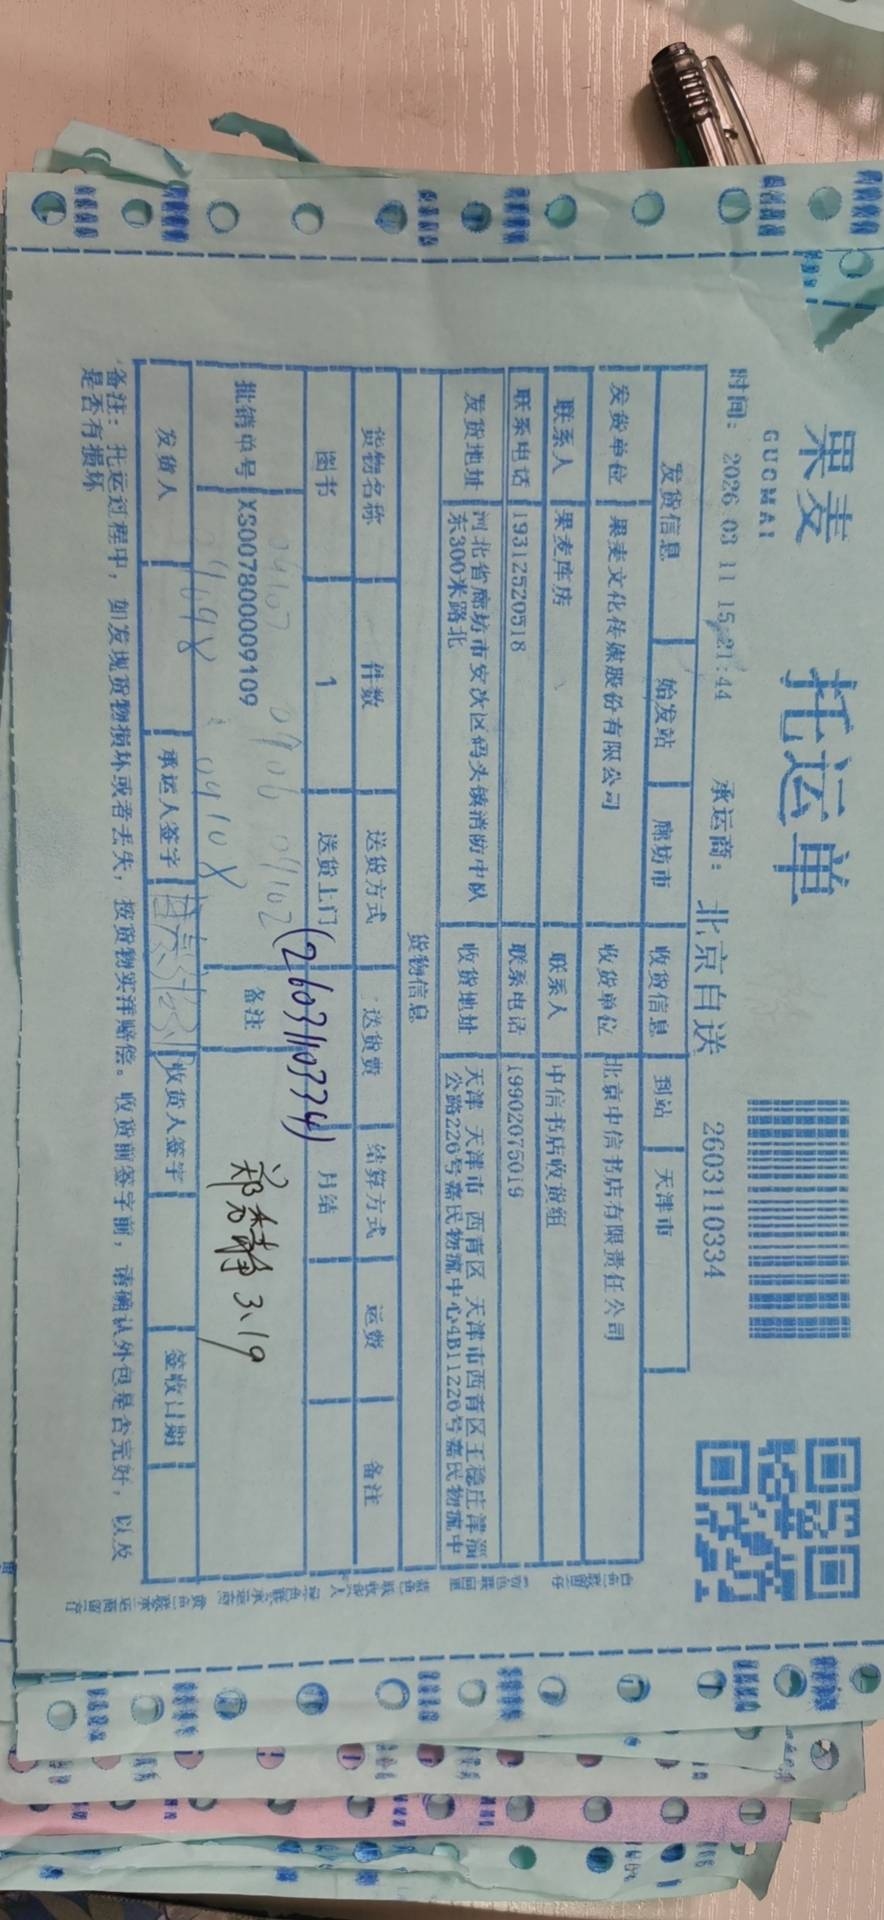 果麦 托运单
GUOMAI
时间: 2026 03 11 15:21:44 承运商: 北京自送 2603110334
发货信息 始发站 廊坊市 收货信息 到站 天津市
发货单位 果麦文化传媒股份有限公司 收货单位 北京中信书店有限责任公司
联系人 果麦库房 联系人 中信书店收货组
联系电话 19312520518 联系电话 19902075019
发货地址 河北省廊坊市安次区码头镇消防中队东300米路北 收货地址 天津 天津市 西青区 天津市西青区王稳庄津淄公路226号嘉民物流中心4B11226号嘉民物流中
货物信息
货物名称 件数 送货方式 送货费 结算方式 运费 备注
图书 1 送货上门 月结
(2603110334)
批销单号 XS007800009109 备注
3.19
发货人 承运人签字 收货人签字 签收日期
备注: 托运过程中, 如发现货物损坏或者丢失, 按货物实洋赔偿。收货前签字前, 请确认外包是否完好, 以及
是否有损坏